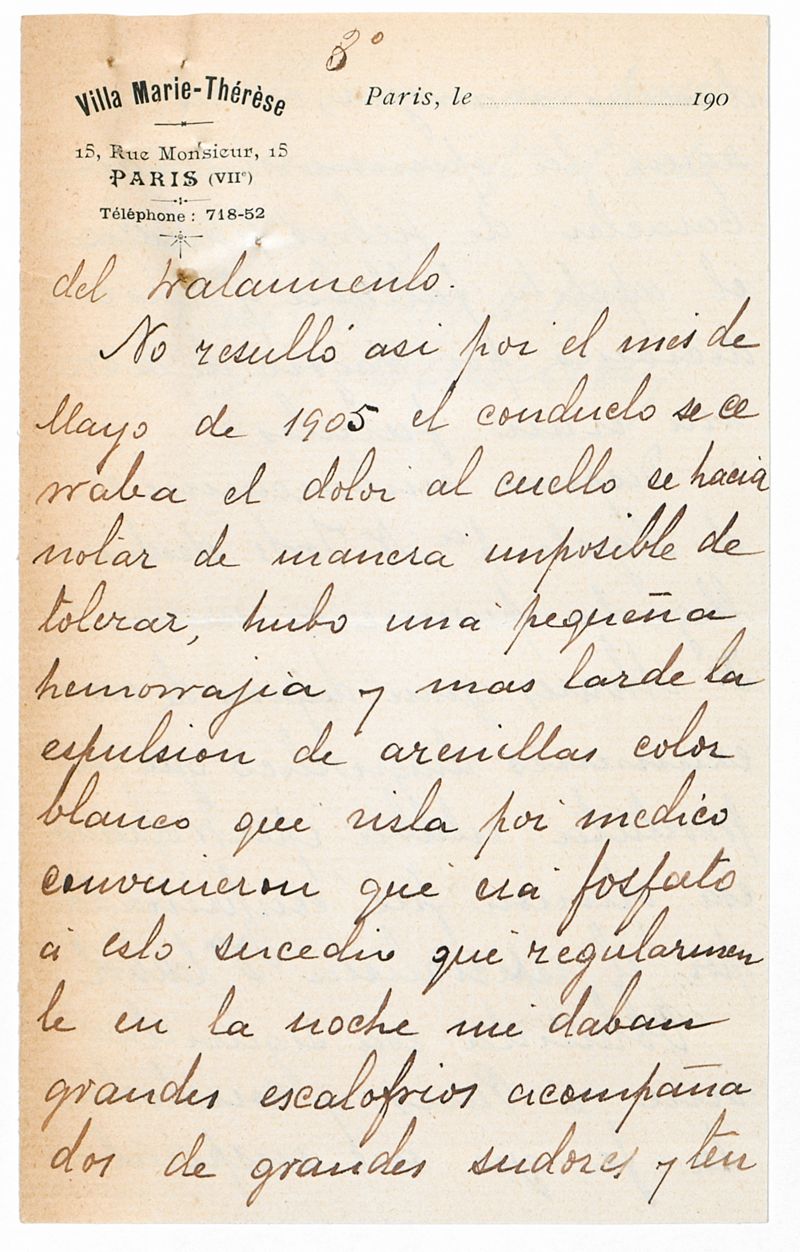 3°
Villa Marie-Thérèse
15, Rue Monsieur, 15
PARIS (VIIe)
Téléphone : 718-52
Paris, le 190
del tratamiento.
No resultó asi por el mes de
Mayo de 1905 el conducto se ce
rraba el dolor al cuello se hacia
notar de manera imposible de
tolerar, hubo una pequeña
hemorrajia y mas tarde la
espulsion de arenillas color
blanco que vista por medico
convinieron que era fosfato
á esto sucedio que regularmen
te en la noche me daban
grandes escalofrios acompaña
dos de grandes sudores y ten